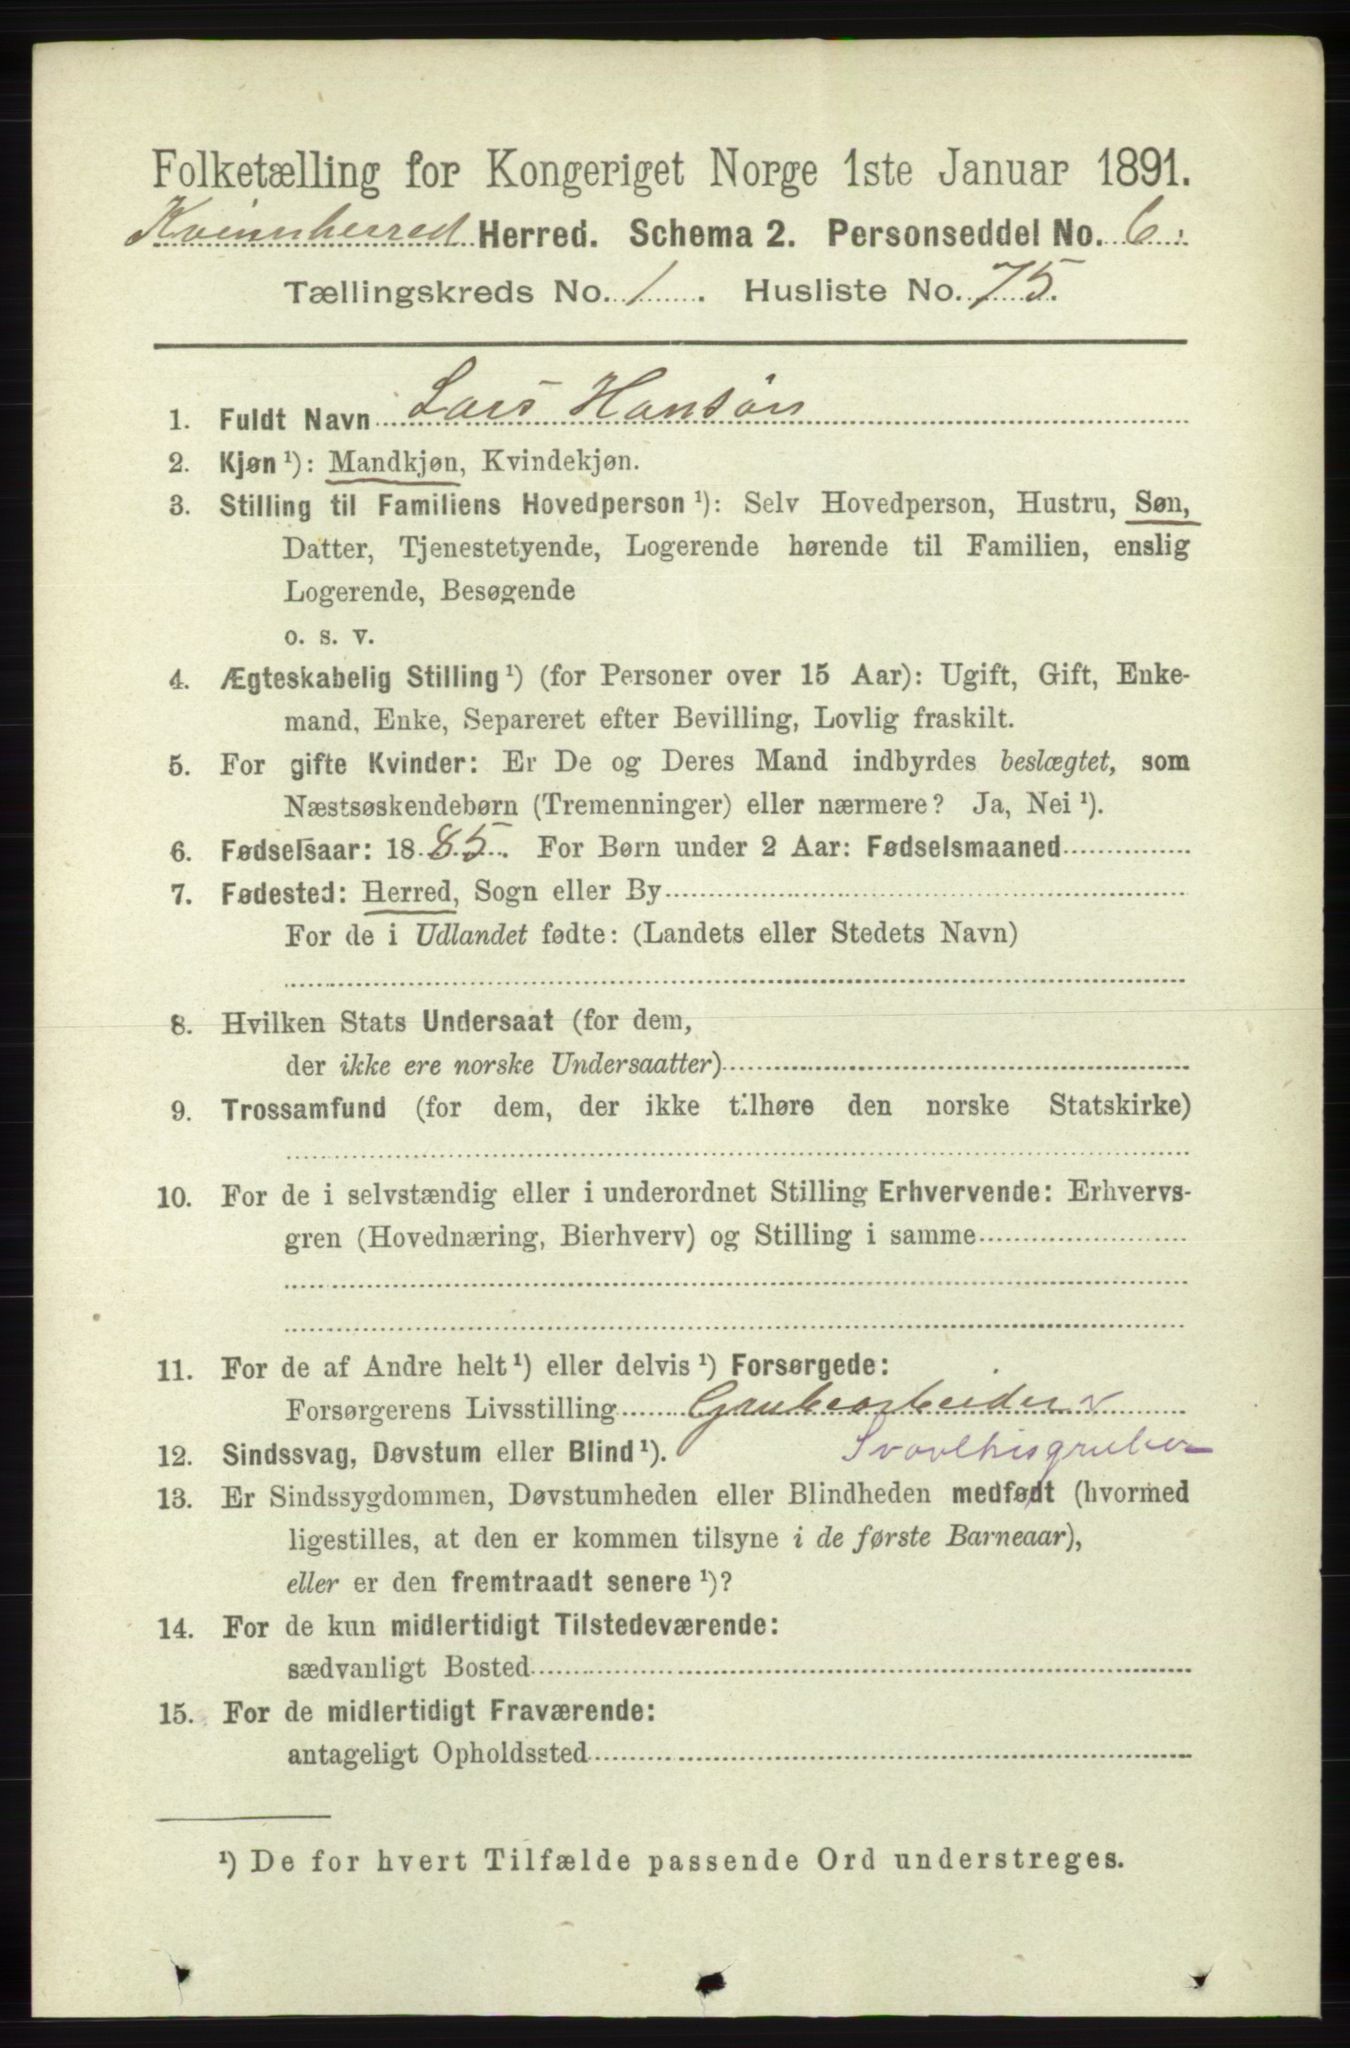 Folketælling for Kongeriget Norge 1ste Januar 1891.
Kvinnherred Herred. Schema 2. Personseddel No. 6.
Tællingskreds No. 1. Husliste No. 75.
1. Fuldt Navn Lars Hansøn
2. Kjøn¹): Mandkjøn, Kvindekjøn.
3. Stilling til Familiens Hovedperson¹): Selv Hovedperson, Hustru, Søn,
Datter, Tjenestetyende, Logerende hørende til Familien, enslig
Logerende, Besøgende
o. s. v.
4. Ægteskabelig Stilling¹) (for Personer over 15 Aar): Ugift, Gift, Enke-
mand, Enke, Separeret efter Bevilling, Lovlig fraskilt.
5. For gifte Kvinder: Er De og Deres Mand indbyrdes beslægtet, som
Næstsøskendebørn (Tremenninger) eller nærmere? Ja, Nei¹).
6. Fødselsaar: 1885. For Børn under 2 Aar: Fødselsmaaned
7. Fødested: Herred, Sogn eller By
For de i Udlandet fødte: (Landets eller Stedets Navn)
8. Hvilken Stats Undersaat (for dem,
der ikke ere norske Undersaatter)
9. Trossamfund (for dem, der ikke tilhøre den norske Statskirke)
10. For de i selvstændig eller i underordnet Stilling Erhvervende: Erhvervs-
gren (Hovednæring, Bierhverv) og Stilling i samme
11. For de af Andre helt¹) eller delvis¹) Forsørgede:
Forsørgerens Livsstilling Grubearbeider v
12. Sindssvag, Døvstum eller Blind¹). Svovlkisgruber
13. Er Sindssygdommen, Døvstumheden eller Blindheden medfødt (hvormed
ligestilles, at den er kommen tilsyne i de første Barneaar),
eller er den fremtraadt senere¹)?
14. For de kun midlertidigt Tilstedeværende:
sædvanligt Bosted
15. For de midlertidigt Fraværende:
antageligt Opholdssted
¹) De for hvert Tilfælde passende Ord understreges.